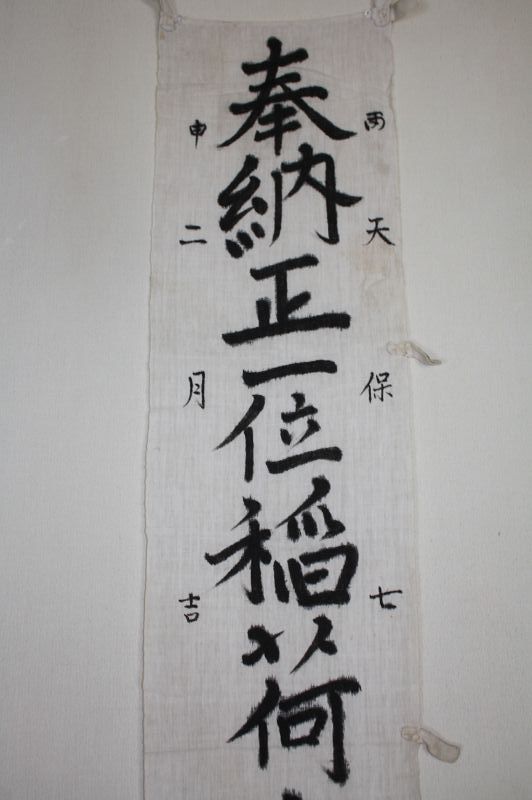 奉納正一位稲荷
丙天保七
申二月吉